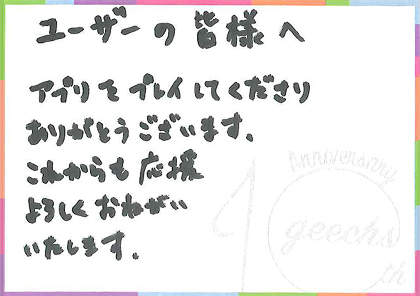 ユーザーの皆様へ
アプリをプレイしてくださり
ありがとうございます。
これからも応援
よろしくおねがい
いたします。
Anniversary
10
geechs
th